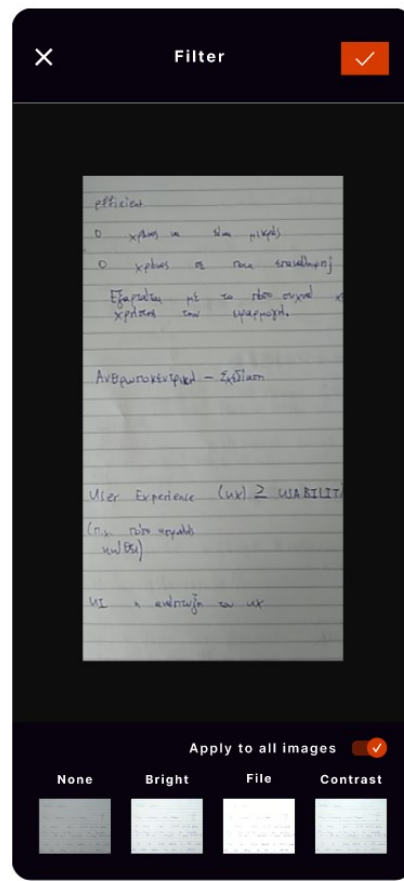 Filter
efficient
Ο χρόνος να είναι μικρός
Ο χρόνος σε ποια επανάληψη;
Εξαρτάται με το πόσο συχνά
χρήστης την εφαρμογή.
Ανθρωποκεντρική - Σχεδίαση
User Experience (UX) ≥ USABILIT
(π.χ. πόσο
UI η ανάπτυξη του UX
Apply to all images
None Bright File Contrast